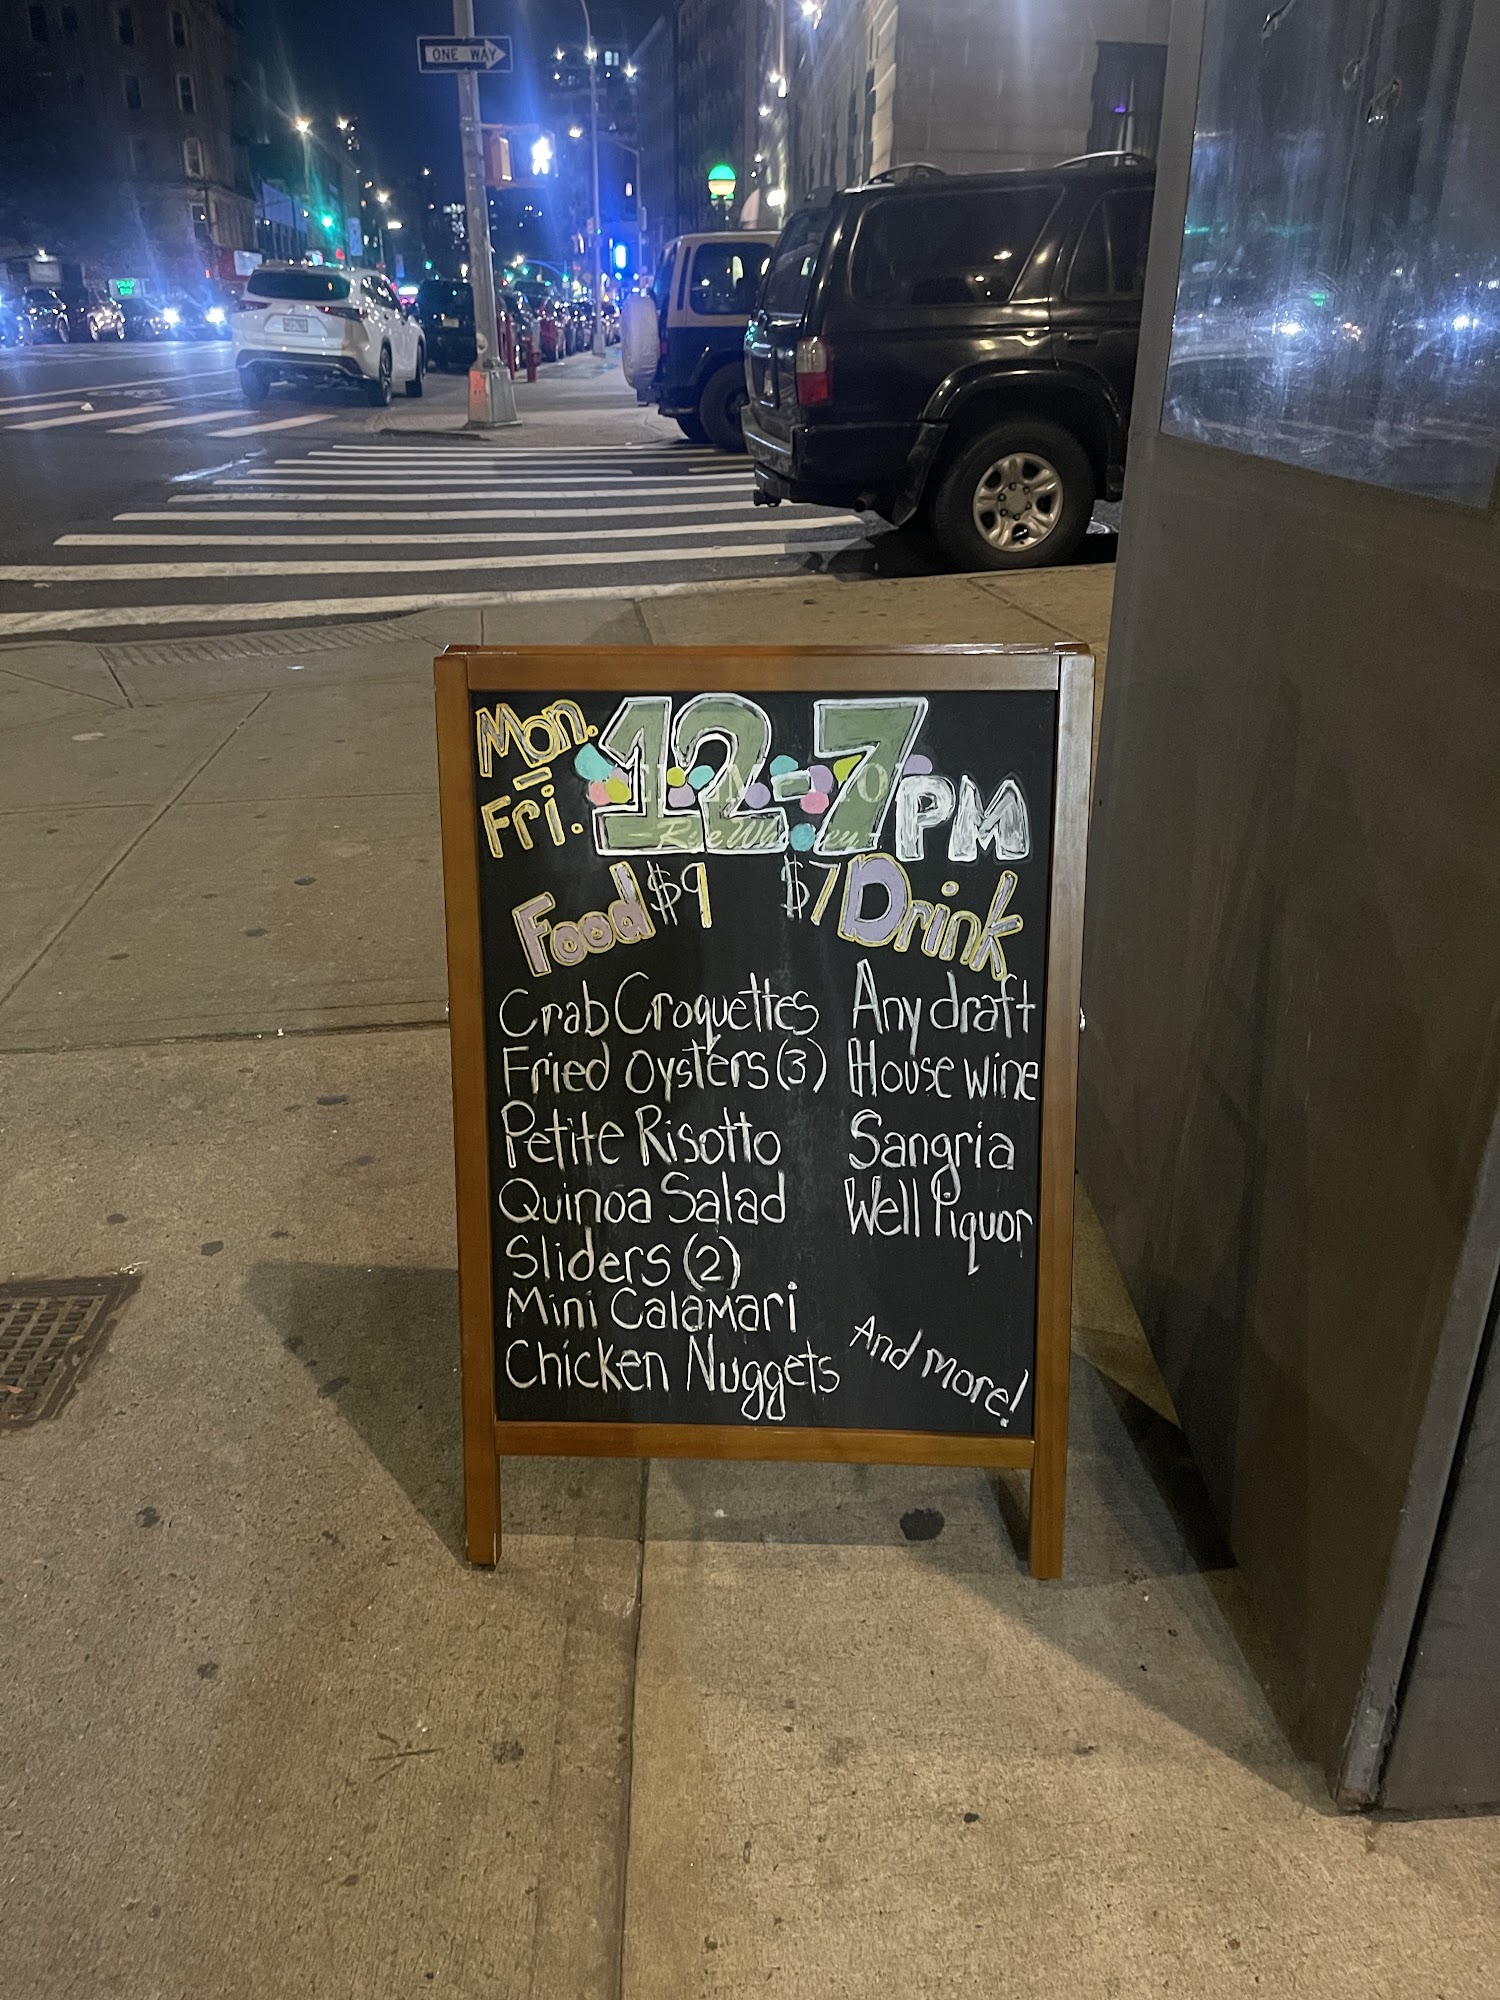 ONE WAY
Mon.
-
Fri.
12-7 PM
Rye Whiskey
Food $9
Crab Croquettes
Fried Oysters (3)
Petite Risotto
Quinoa Salad
Sliders (2)
Mini Calamari
Chicken Nuggets
$7 Drink
Any draft
House wine
Sangria
Well liquor
And more!